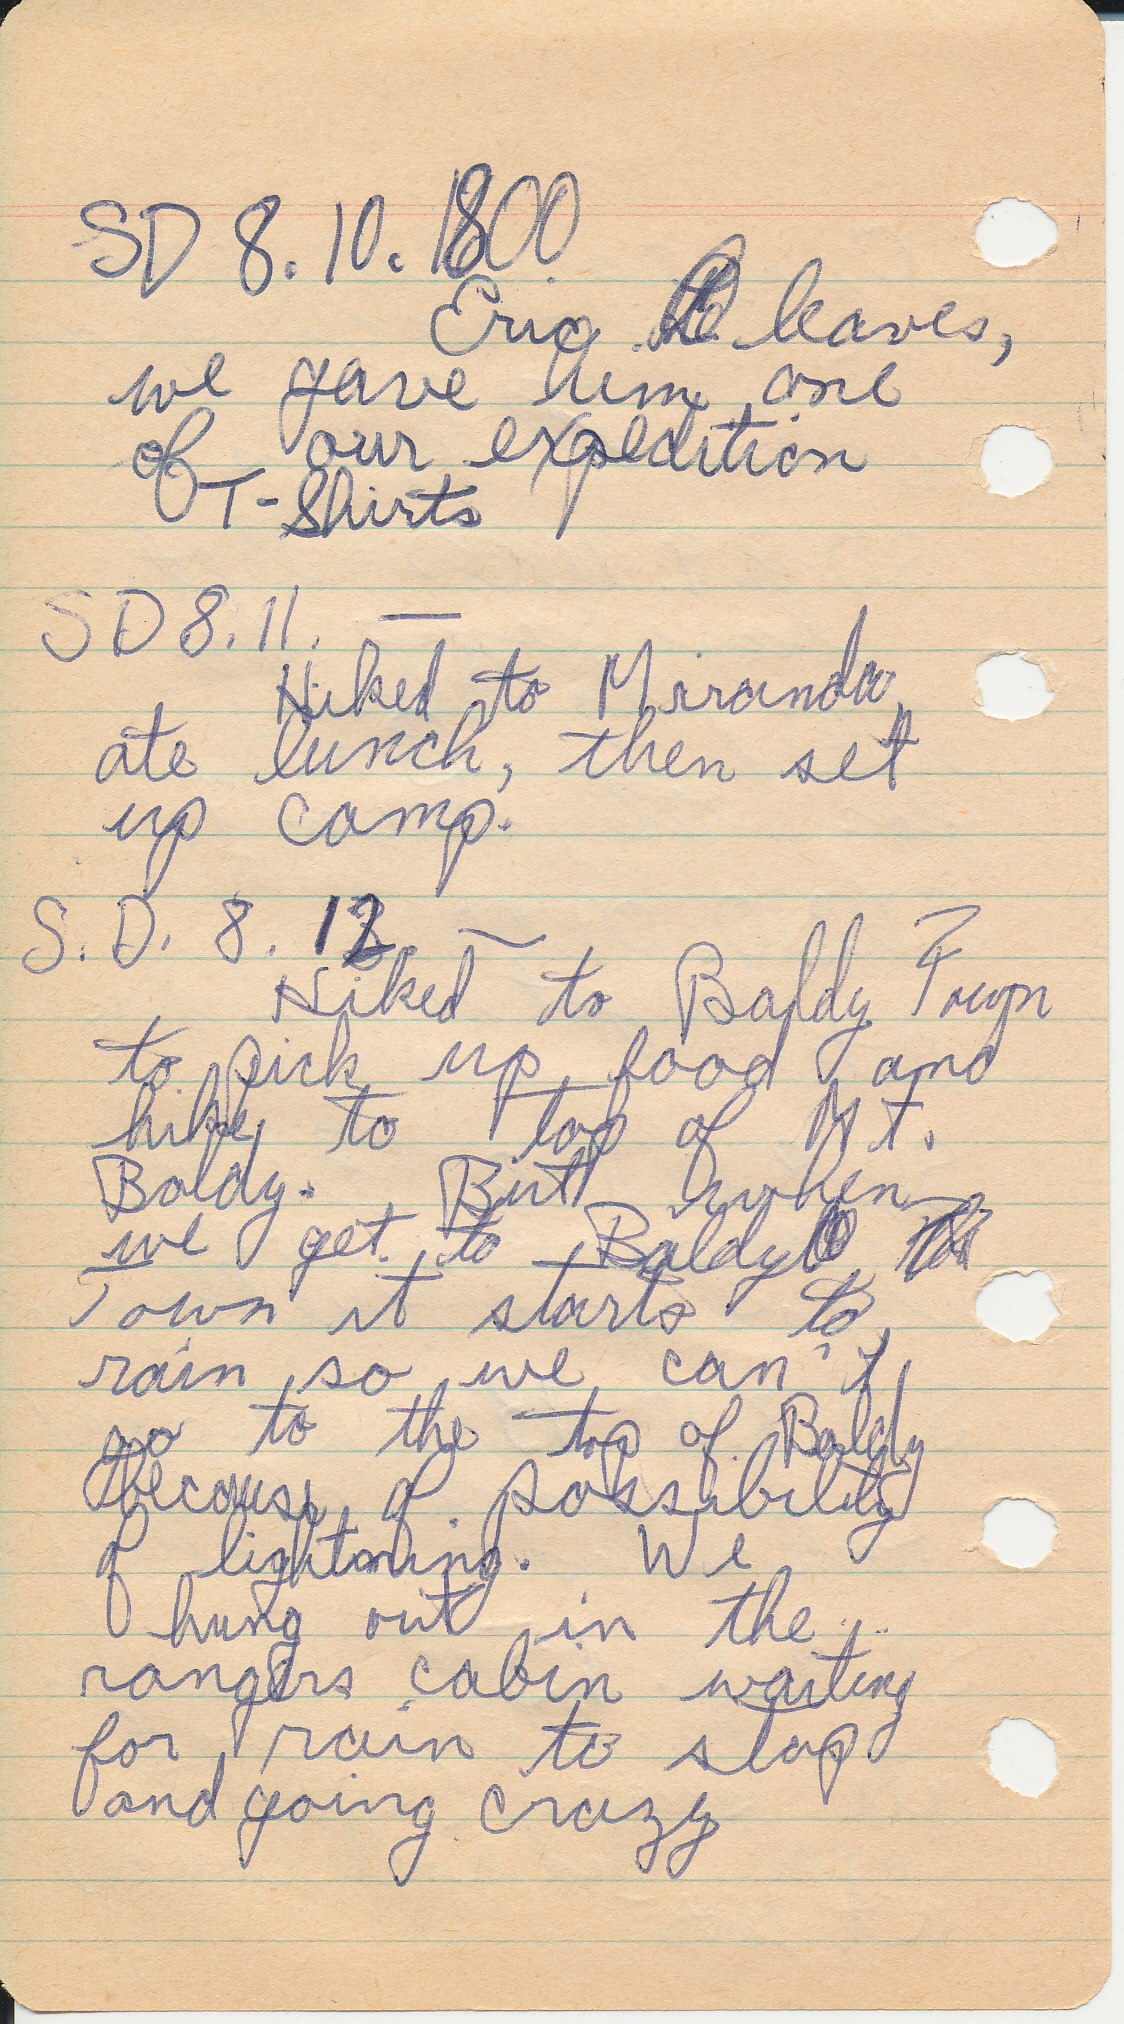 SD 8.10.1800
Eric leaves,
we gave him one
of our expedition
T-Shirts
SD 8.11. —
Hiked to Miranda,
ate lunch, then set
up camp.
S.D. 8.12 —
Hiked to Baldy Town
to pick up food and
hike to top of Mt.
Baldy. But when
we get to Baldy
Town it starts to
rain so we can't
go to the top of Baldy
because of possibility
of lightning. We
hung out in the
rangers cabin waiting
for rain to stop
and going crazy